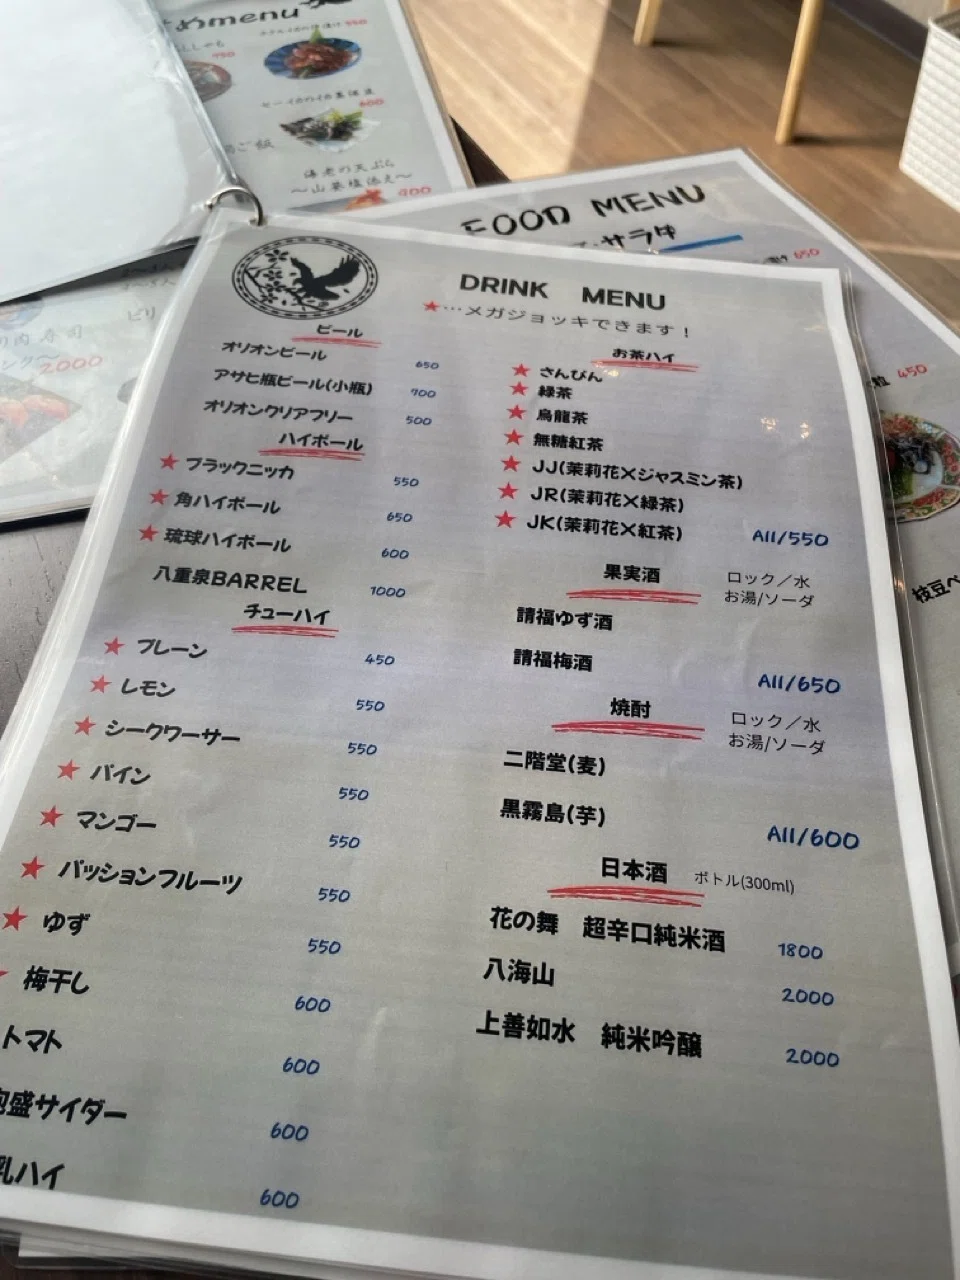 menu
550
790
600
海老の天ぷら
〜山葵塩添え〜
900
FOOD MENU
サラダ
650
450
枝豆ペ
肉寿司
2000
DRINK MENU
★…メガジョッキできます！
ビール
オリオンビール 650
アサヒ瓶ビール(小瓶) 700
オリオンクリアフリー 500
ハイボール
★ ブラックニッカ 550
★ 角ハイボール 650
★ 琉球ハイボール 600
八重泉BARREL 1000
チューハイ
★ プレーン 450
★ レモン 550
★ シークワーサー 550
★ パイン 550
★ マンゴー 550
★ パッションフルーツ 550
★ ゆず 550
★ 梅干し 600
トマト 600
盛サイダー 600
乳ハイ 600
お茶ハイ
★ さんぴん
★ 緑茶
★ 烏龍茶
★ 無糖紅茶
★ JJ(茉莉花×ジャスミン茶)
★ JR(茉莉花×緑茶)
★ JK(茉莉花×紅茶) All/550
果実酒 ロック／水
お湯/ソーダ
請福ゆず酒
請福梅酒 All/650
焼酎 ロック／水
お湯/ソーダ
二階堂(麦)
黒霧島(芋) All/600
日本酒 ボトル(300ml)
花の舞 超辛口純米酒 1800
八海山 2000
上善如水 純米吟醸 2000